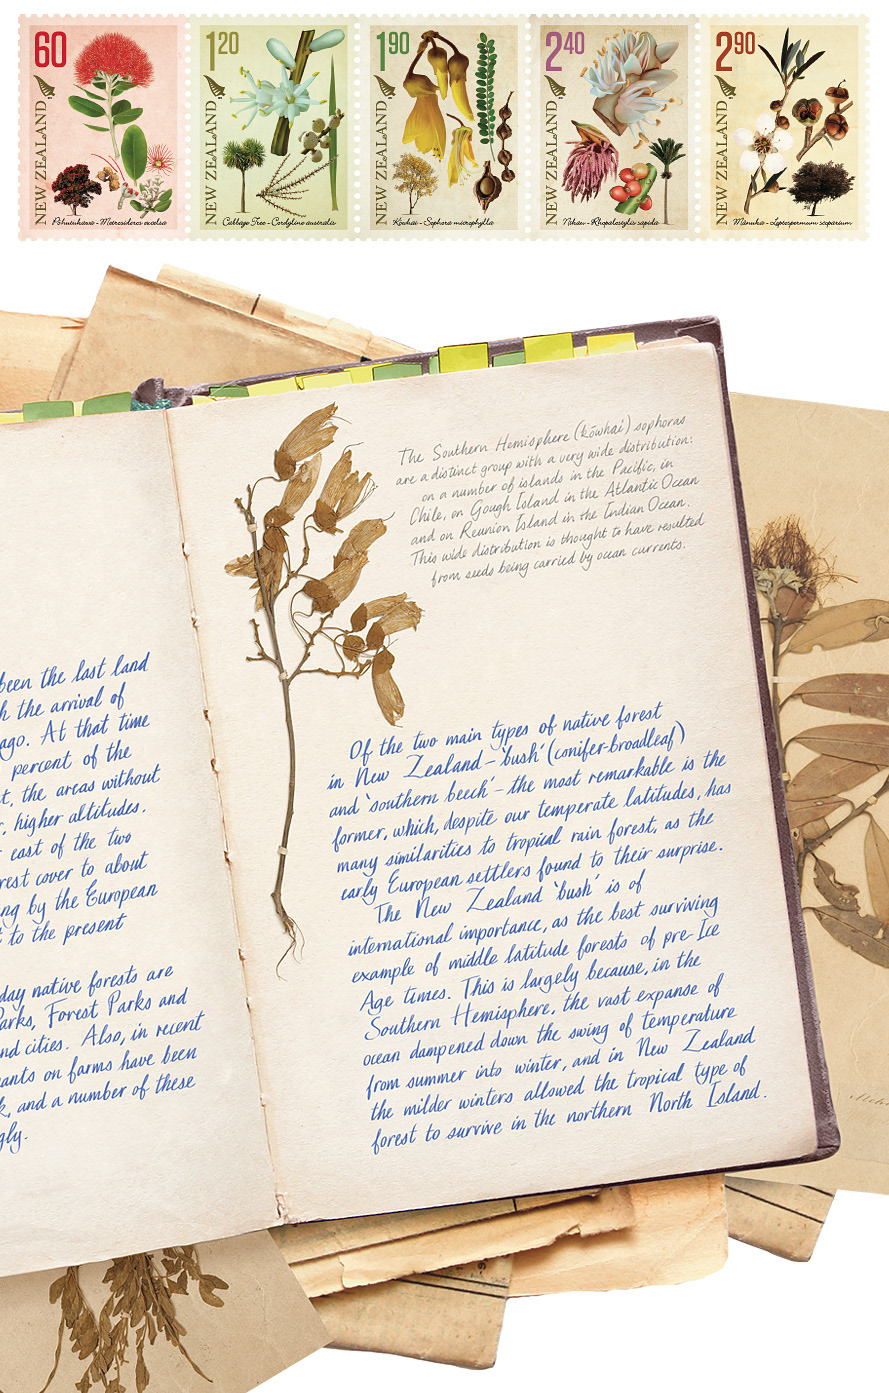 60
NEW ZEALAND
Pōhutukawa - Metrosideros excelsa
1.20
NEW ZEALAND
Cabbage Tree - Cordyline australis
1.90
NEW ZEALAND
Kōwhai - Sophora microphylla
2.40
NEW ZEALAND
Nīkau - Rhopalostylis sapida
2.90
NEW ZEALAND
Mānuka - Leptospermum scoparium
been the last land
h the arrival of
ago. At that time
percent of the
t, the areas without
r, higher altitudes.
east of the two
rest cover to about
ng by the European
t to the present
day native forests are
Parks, Forest Parks and
nd cities. Also, in recent
ants on farms have been
k, and a number of these
gly.
The Southern Hemisphere (kōwhai) sophoras
are a distinct group with a very wide distribution:
on a number of islands in the Pacific, in
Chile, on Gough Island in the Atlantic Ocean
and on Reunion Island in the Indian Ocean.
This wide distribution is thought to have resulted
from seeds being carried by ocean currents.
Of the two main types of native forest
in New Zealand – 'bush' (conifer-broadleaf)
and 'southern beech' – the most remarkable is the
former, which, despite our temperate latitudes, has
many similarities to tropical rain forest, as the
early European settlers found to their surprise.
The New Zealand 'bush' is of
international importance, as the best surviving
example of middle latitude forests of pre-Ice
Age times. This is largely because, in the
Southern Hemisphere, the vast expanse of
ocean dampened down the swing of temperature
from summer into winter, and in New Zealand
the milder winters allowed the tropical type of
forest to survive in the northern North Island.